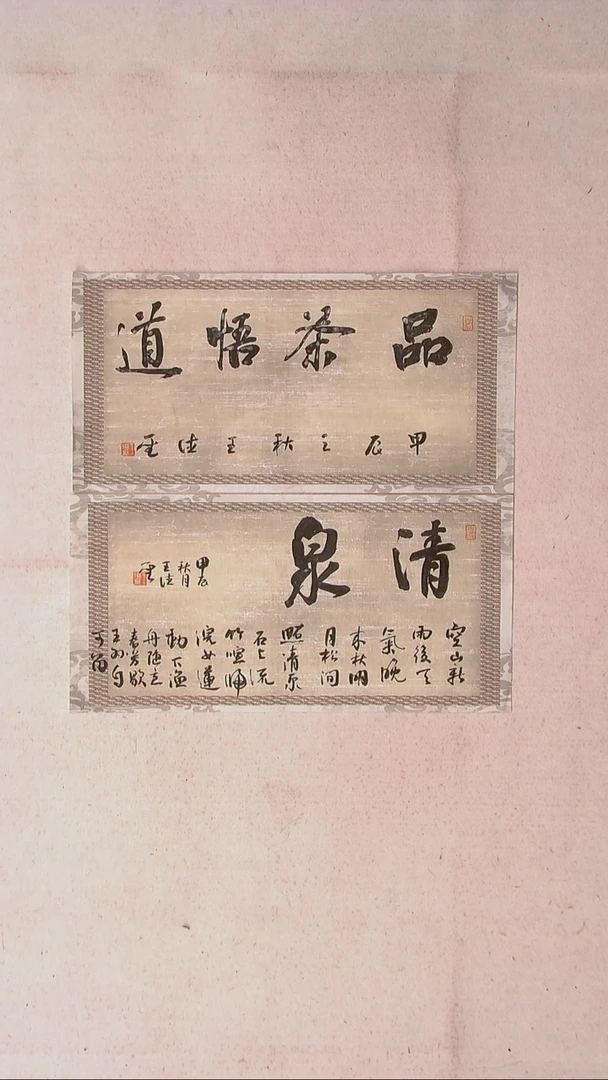 品茶悟道
甲辰之秋王
清泉
空山新
雨後天
氣晚
来秋明
月松间
照清泉
石上流
竹喧歸
浣女蓮
動下漁
舟随意
春芳歇
王孙自
可留
甲辰
秋月
王